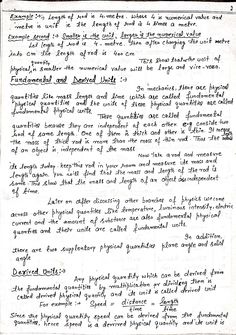 2
Example :- Length of rod is 4 metre. where 4 is numerical value and
metre is unit ie the length of rod is 4 times a metre.
Example second :- Smaller is the unit, larger is the numerical value
Let length of rod is 4 metre. Then after changing the unit metre
into cm the length of rod = 400 cm.
This show that the unit of
physical quantity is smaller the numerical value will be large and vice-versa.
Fundamental and Derived Units :-
In mechanics, there are physical
quantities like mass length and time which are called fundamental
physical quantities and the units of these physical quantities are called
fundamental physical units.
These are called fundamental
quantities because they are independent of each other eg consider two
rod of same length. One of them is thick and other is thin. It means
the mass of thick rod is more than the mass of thin rod. Thus the mass
of an object is independent of the
Now take mass and measure
its length today. keep this rod in your room and measure its mass and
length again. You will find that the mass and length of the rod is
same. This show that the mass and length of an object are independent
of time.
Later on after discussing other branches of physics we come
across other physical quantities like temperature, luminous intensity, electric
current and the amount of substance are also fundamental physical
quantities and their units are called fundamental units.
In addition,
there are two supplementary physical quantities plane angle and solid
angle
Derived Units :-
Any physical quantity which can be derived from
the fundamental quantities by multiplication or division then is
called derived physical quantity and its unit is called derived unit
For example :- Speed = distance / time = length / time
Since the physical quantity speed can be derived from the fundamental
quantities, hence speed is a derived physical quantity and its unit is